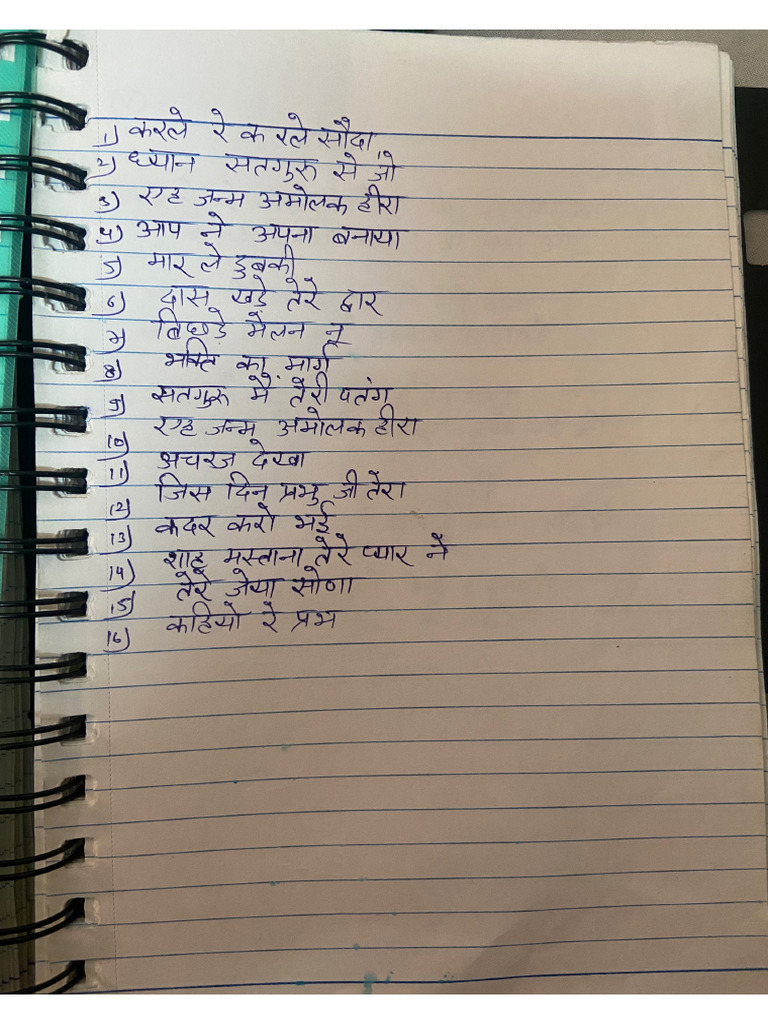 1) करले रे करले सौदा
2) ध्यान सतगुरु से जो
3) एह जन्म अमोलक हीरा
4) आप ने अपना बनाया
5) मार ले डुबकी
6) दास खड़े तेरे द्वार
7) बिछड़े मेलन नू
8) भक्ति का मार्ग
9) सतगुरु मैं तेरी पतंग
10) एह जन्म अमोलक हीरा
11) अचरज देखा
12) जिस दिन प्रभु जी तेरा
13) कदर करो भई
14) शाह मस्ताना तेरे प्यार ने
15) तेरे जेया सोणा
16) कहियो रे प्रभ